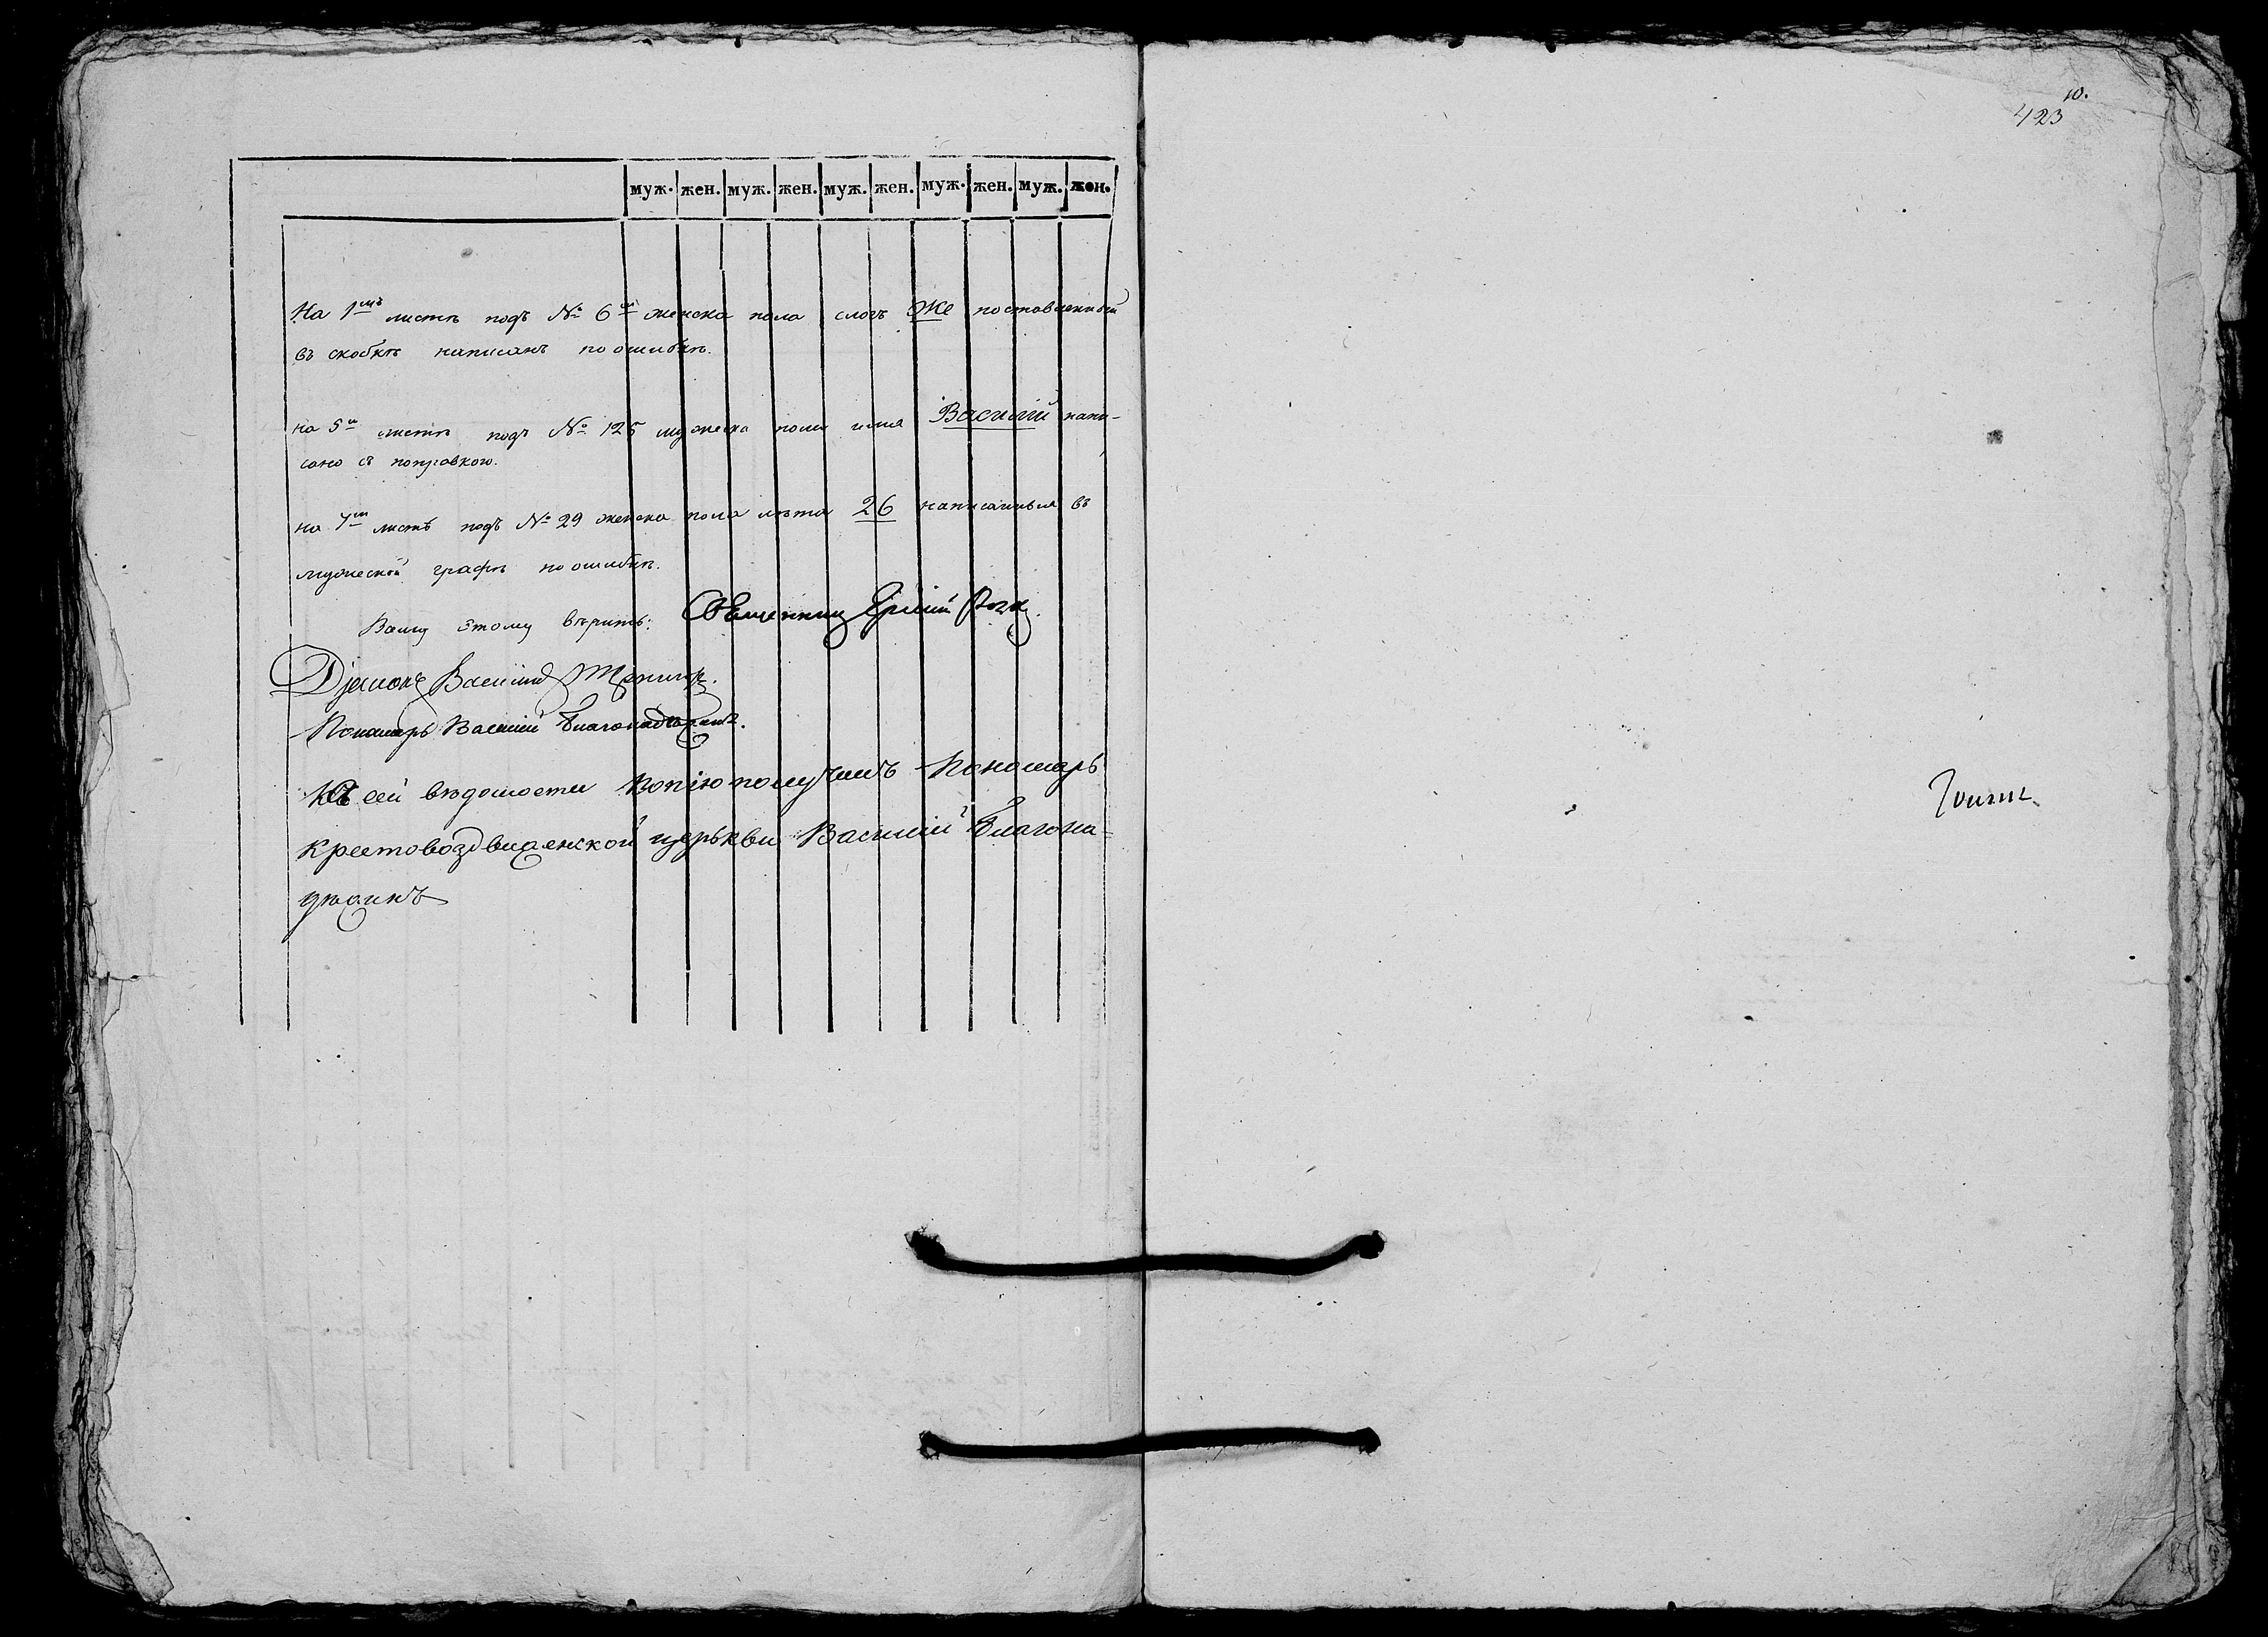 муж. жен. муж. жен. муж. жен. муж. жен. муж. жен.
На 1мъ листѣ подъ № 6м женска пола слогъ же поставленный
въ скобкѣ написанъ по ошибкѣ.
на 5м листѣ подъ № 125 мужеска пола имя Василій напи-
сано съ поправкою.
на 7м листѣ подъ № 29 женска пола лѣта 26 написанныя въ
мужеской графѣ по ошибкѣ.
Всему этому вѣрить: Священникъ
Діаконъ Василій
Пономарь Василій Благонадѣжинъ.
Съ сей вѣдомости копію получилъ Пономарь
Крестовоздвиженской церькви Василій Благона-
дѣжинъ
10.
423